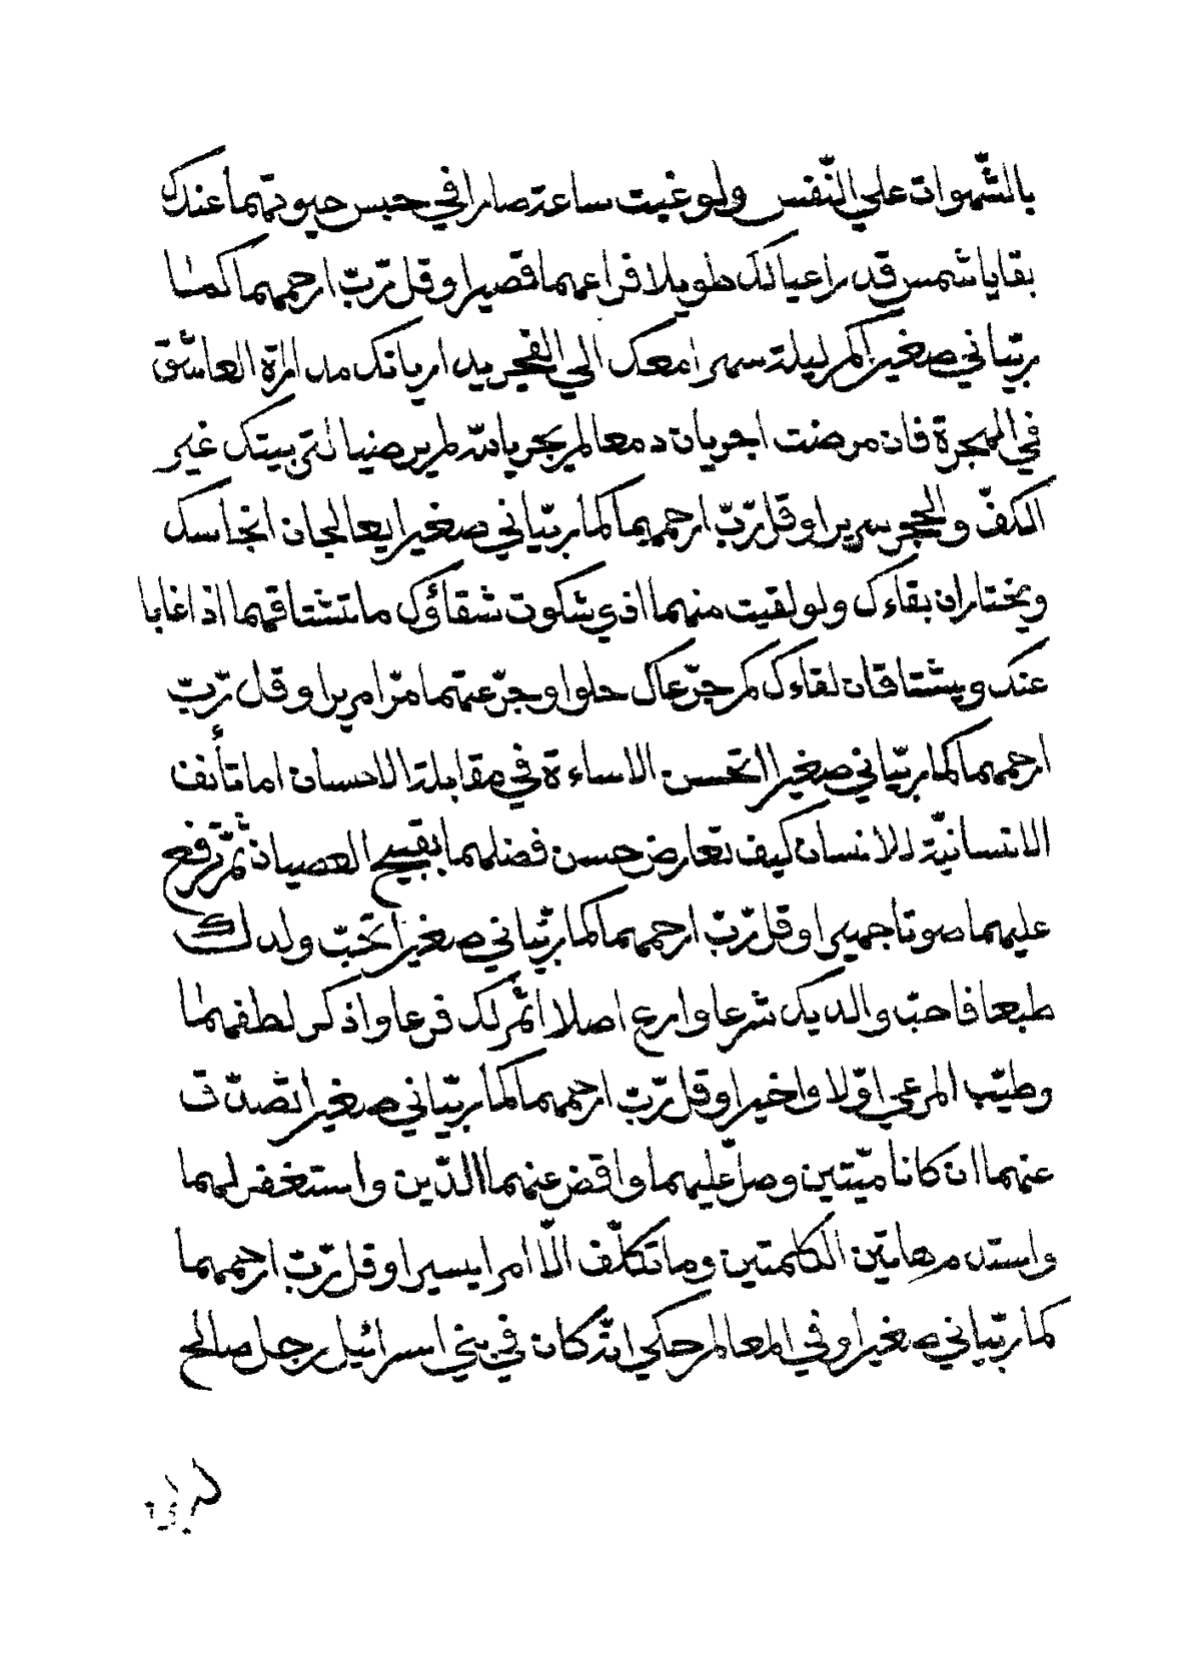 بالشّهوات علي النّفس ولو غبت ساعة صارا في حبس حيوتهما عندك
بقايا شمس قد راعياك طويلا فراعهما قصيرا وقل رّبّ ارحمهما كما
ربّياني صغيرا كم ليلة سهرا معك الي الفجر يداريانك مداراة العاشق
في الهجرة فان مرضت اجريان دمعا لم يجر يالله لم يرضيا لتربيتك غير
الكفّ والحجر سريرا وقل رّبّ ارحمهما كما ربّياني صغيرا يعالجان انجاسك
ويختاران بقاءك ولو لقيت منهما اذي شكوت شقاؤك ما تشتاقهما اذا غابا
عنك ويشتاقان لقاءك كم جرّعاك حلوا وجرّعتهما مرّا مريرا وقل رّبّ
ارحمهما كما ربّياني صغيرا اتحسن الاساءة في مقابلة الاحسان اما تأنف
الانسانيّة للانسان كيف تعارض حسن فضلهما بقبيح العصيان ثمّ ترفع
عليهما صوتا جهيرا وقل رّبّ ارحمهما كما ربّياني صغيرا تحبّ ولدك
طبعا فاحبّ والديك شرعا وارع اصلا اثمر لك فرعا واذكر لطفهما
وطيّب المرعي اوّلا واخيرا وقل رّبّ ارحمهما كما ربّياني صغيرا تصدّق
عنهما ان كانا ميّتين وصلّ عليهما واقض عنهما الدّين واستغفر لهما
واستدم هاتين الكلمتين وما تكلّف الّا امرا يسيرا وقل رّبّ ارحمهما
كما ربّياني صغيرا وفي المعالم حكي انّه كان في بني اسرائيل رجل صالح